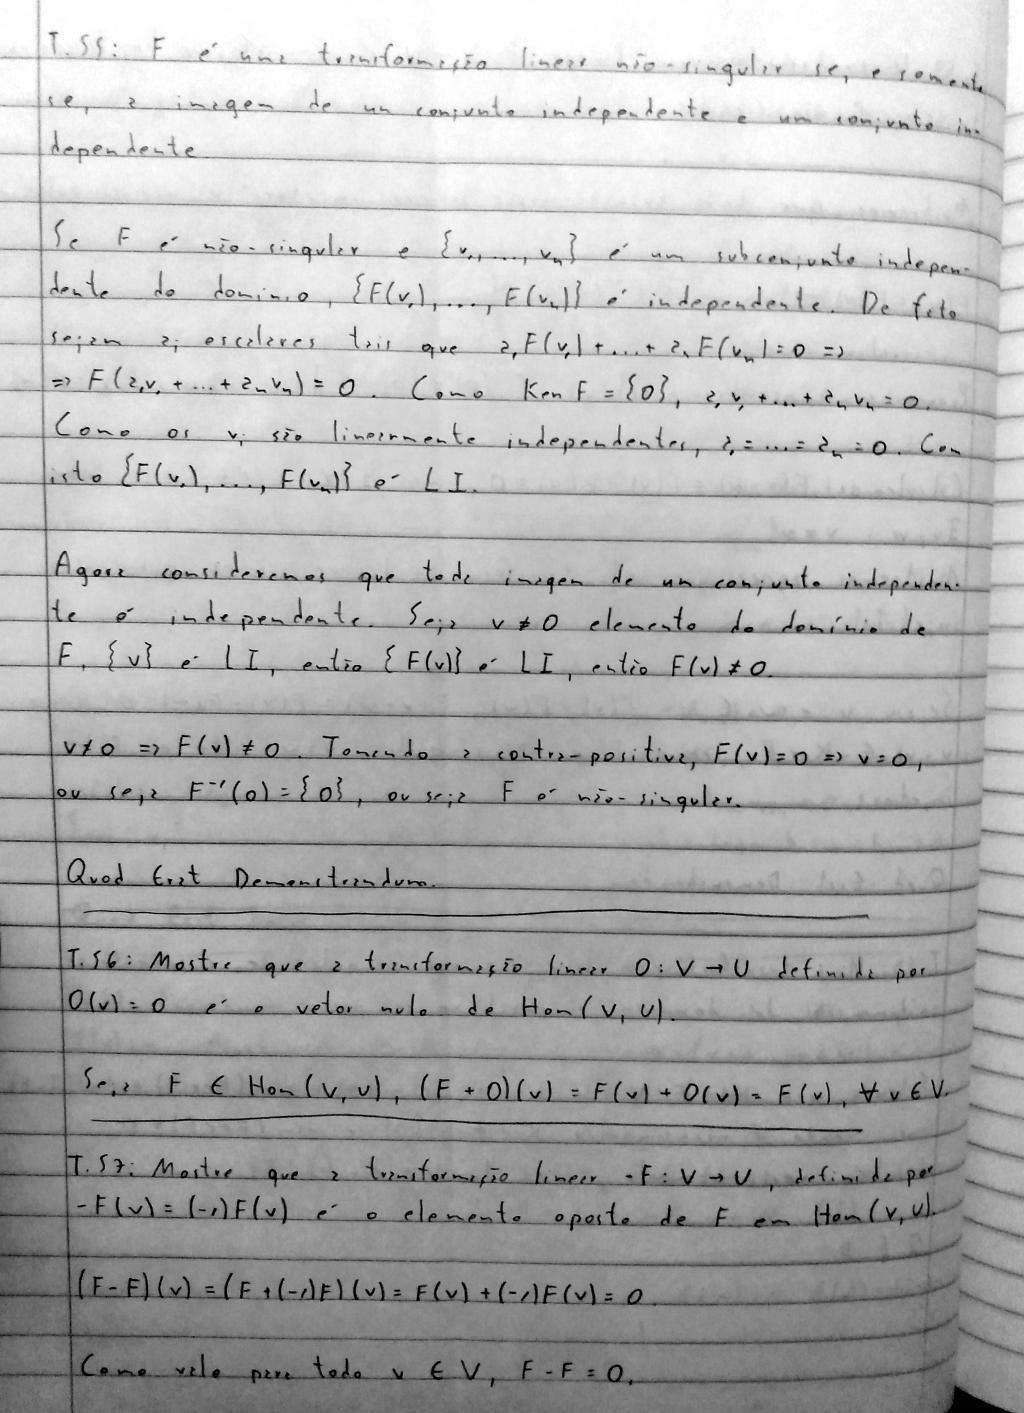 T.55: F é uma transformação linear não-singular se, e somente
se, a imagem de um conjunto independente e um conjunto in-
dependente
Se F é não-singular e {v₁, ..., vₙ} é um subconjunto indepen-
dente do domínio, {F(v₁), ..., F(vₙ)} é independente. De fato
sejam aᵢ escalares tais que a₁F(v₁) + ... + aₙF(vₙ) = 0 =>
=> F(a₁v₁ + ... + aₙvₙ) = 0. Como Ker F = {0}, a₁v₁ + ... + aₙvₙ = 0.
Como os vᵢ são linearmente independentes, a₁ = ... = aₙ = 0. Com
isto {F(v₁), ..., F(vₙ)} é LI.
Agora consideremos que toda imagem de um conjunto independen-
te é independente. Seja v ≠ 0 elemento do domínio de
F, {v} é LI, então {F(v)} é LI, então F(v) ≠ 0.
v ≠ 0 => F(v) ≠ 0. Tomando a contra-positiva, F(v) = 0 => v = 0,
ou seja F⁻¹(0) = {0}, ou seja F é não-singular.
Quod Erat Demonstrandum.
T.56: Mostre que a transformação linear 0: V → U definida por
0(v) = 0 é o vetor nulo de Hom(V, U).
Seja F ∈ Hom(V, U), (F + 0)(v) = F(v) + 0(v) = F(v), ∀ v ∈ V.
T.57: Mostre que a transformação linear -F: V → U, definida por
-F(v) = (-1)F(v) é o elemento oposto de F em Hom(V, U).
(F - F)(v) = (F + (-1)F)(v) = F(v) + (-1)F(v) = 0.
Como vale para todo v ∈ V, F - F = 0.